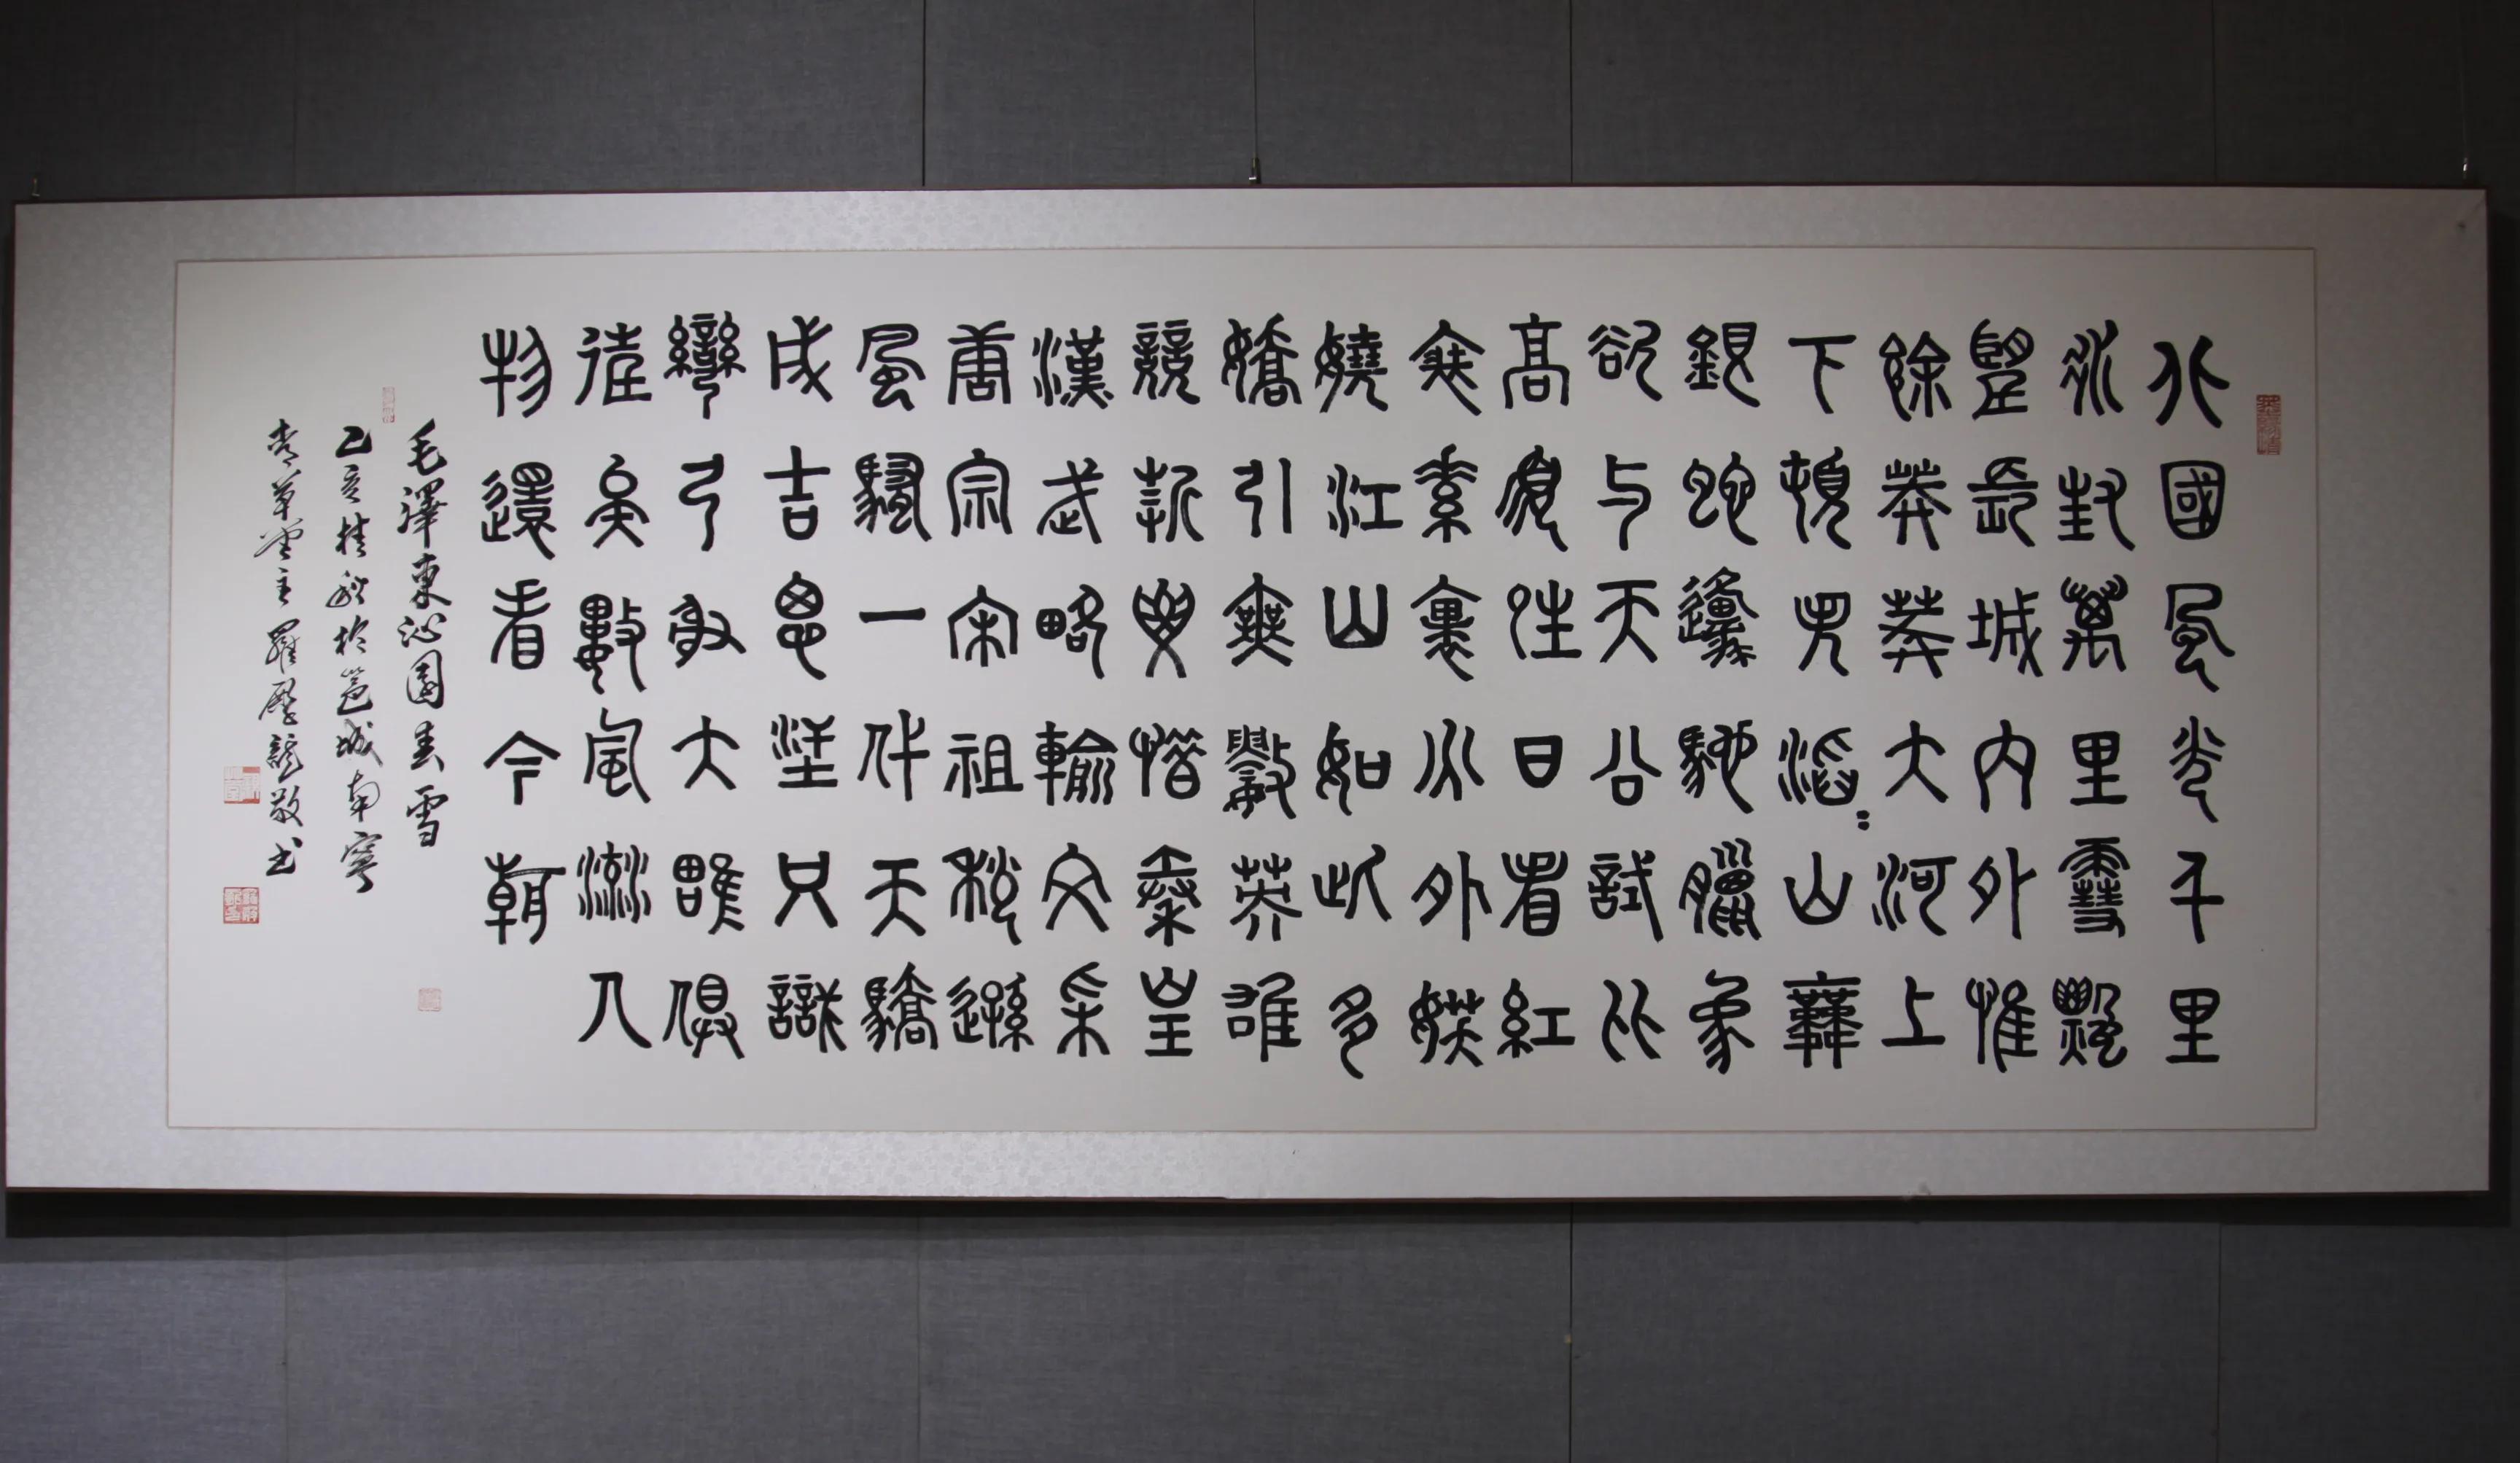 北國風光千里
冰封萬里雪飄
望長城內外惟
餘莽莽大河上
下頓失滔〻山舞
銀蛇原馳臘象
欲与天公試比
高須晴日看紅
裝素裹分外妖
嬈江山如此多
嬌引無數英雄
競折腰惜秦皇
漢武略輸文采
唐宗宋祖稍遜
風騷一代天驕
成吉思汗只識
彎弓射大雕俱
往矣數風流人
物還看今朝
毛澤東沁園春雪
己亥桂秋於邕城南寧
草堂主羅歷龍敬书